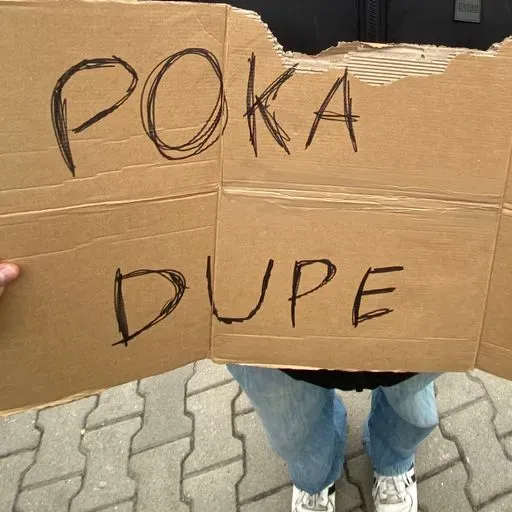 POKA
DUPE